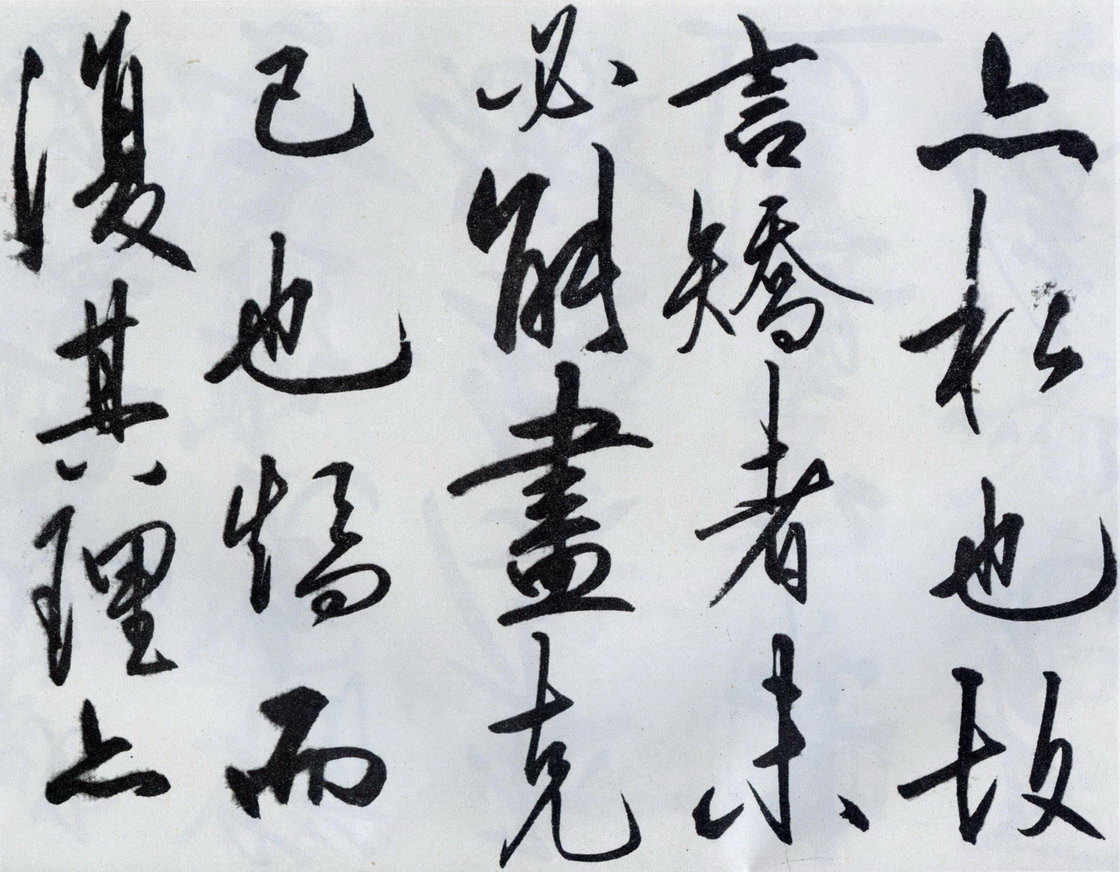 亦私也故
言矯者未
必能盡克
己也矯而
復其理亦